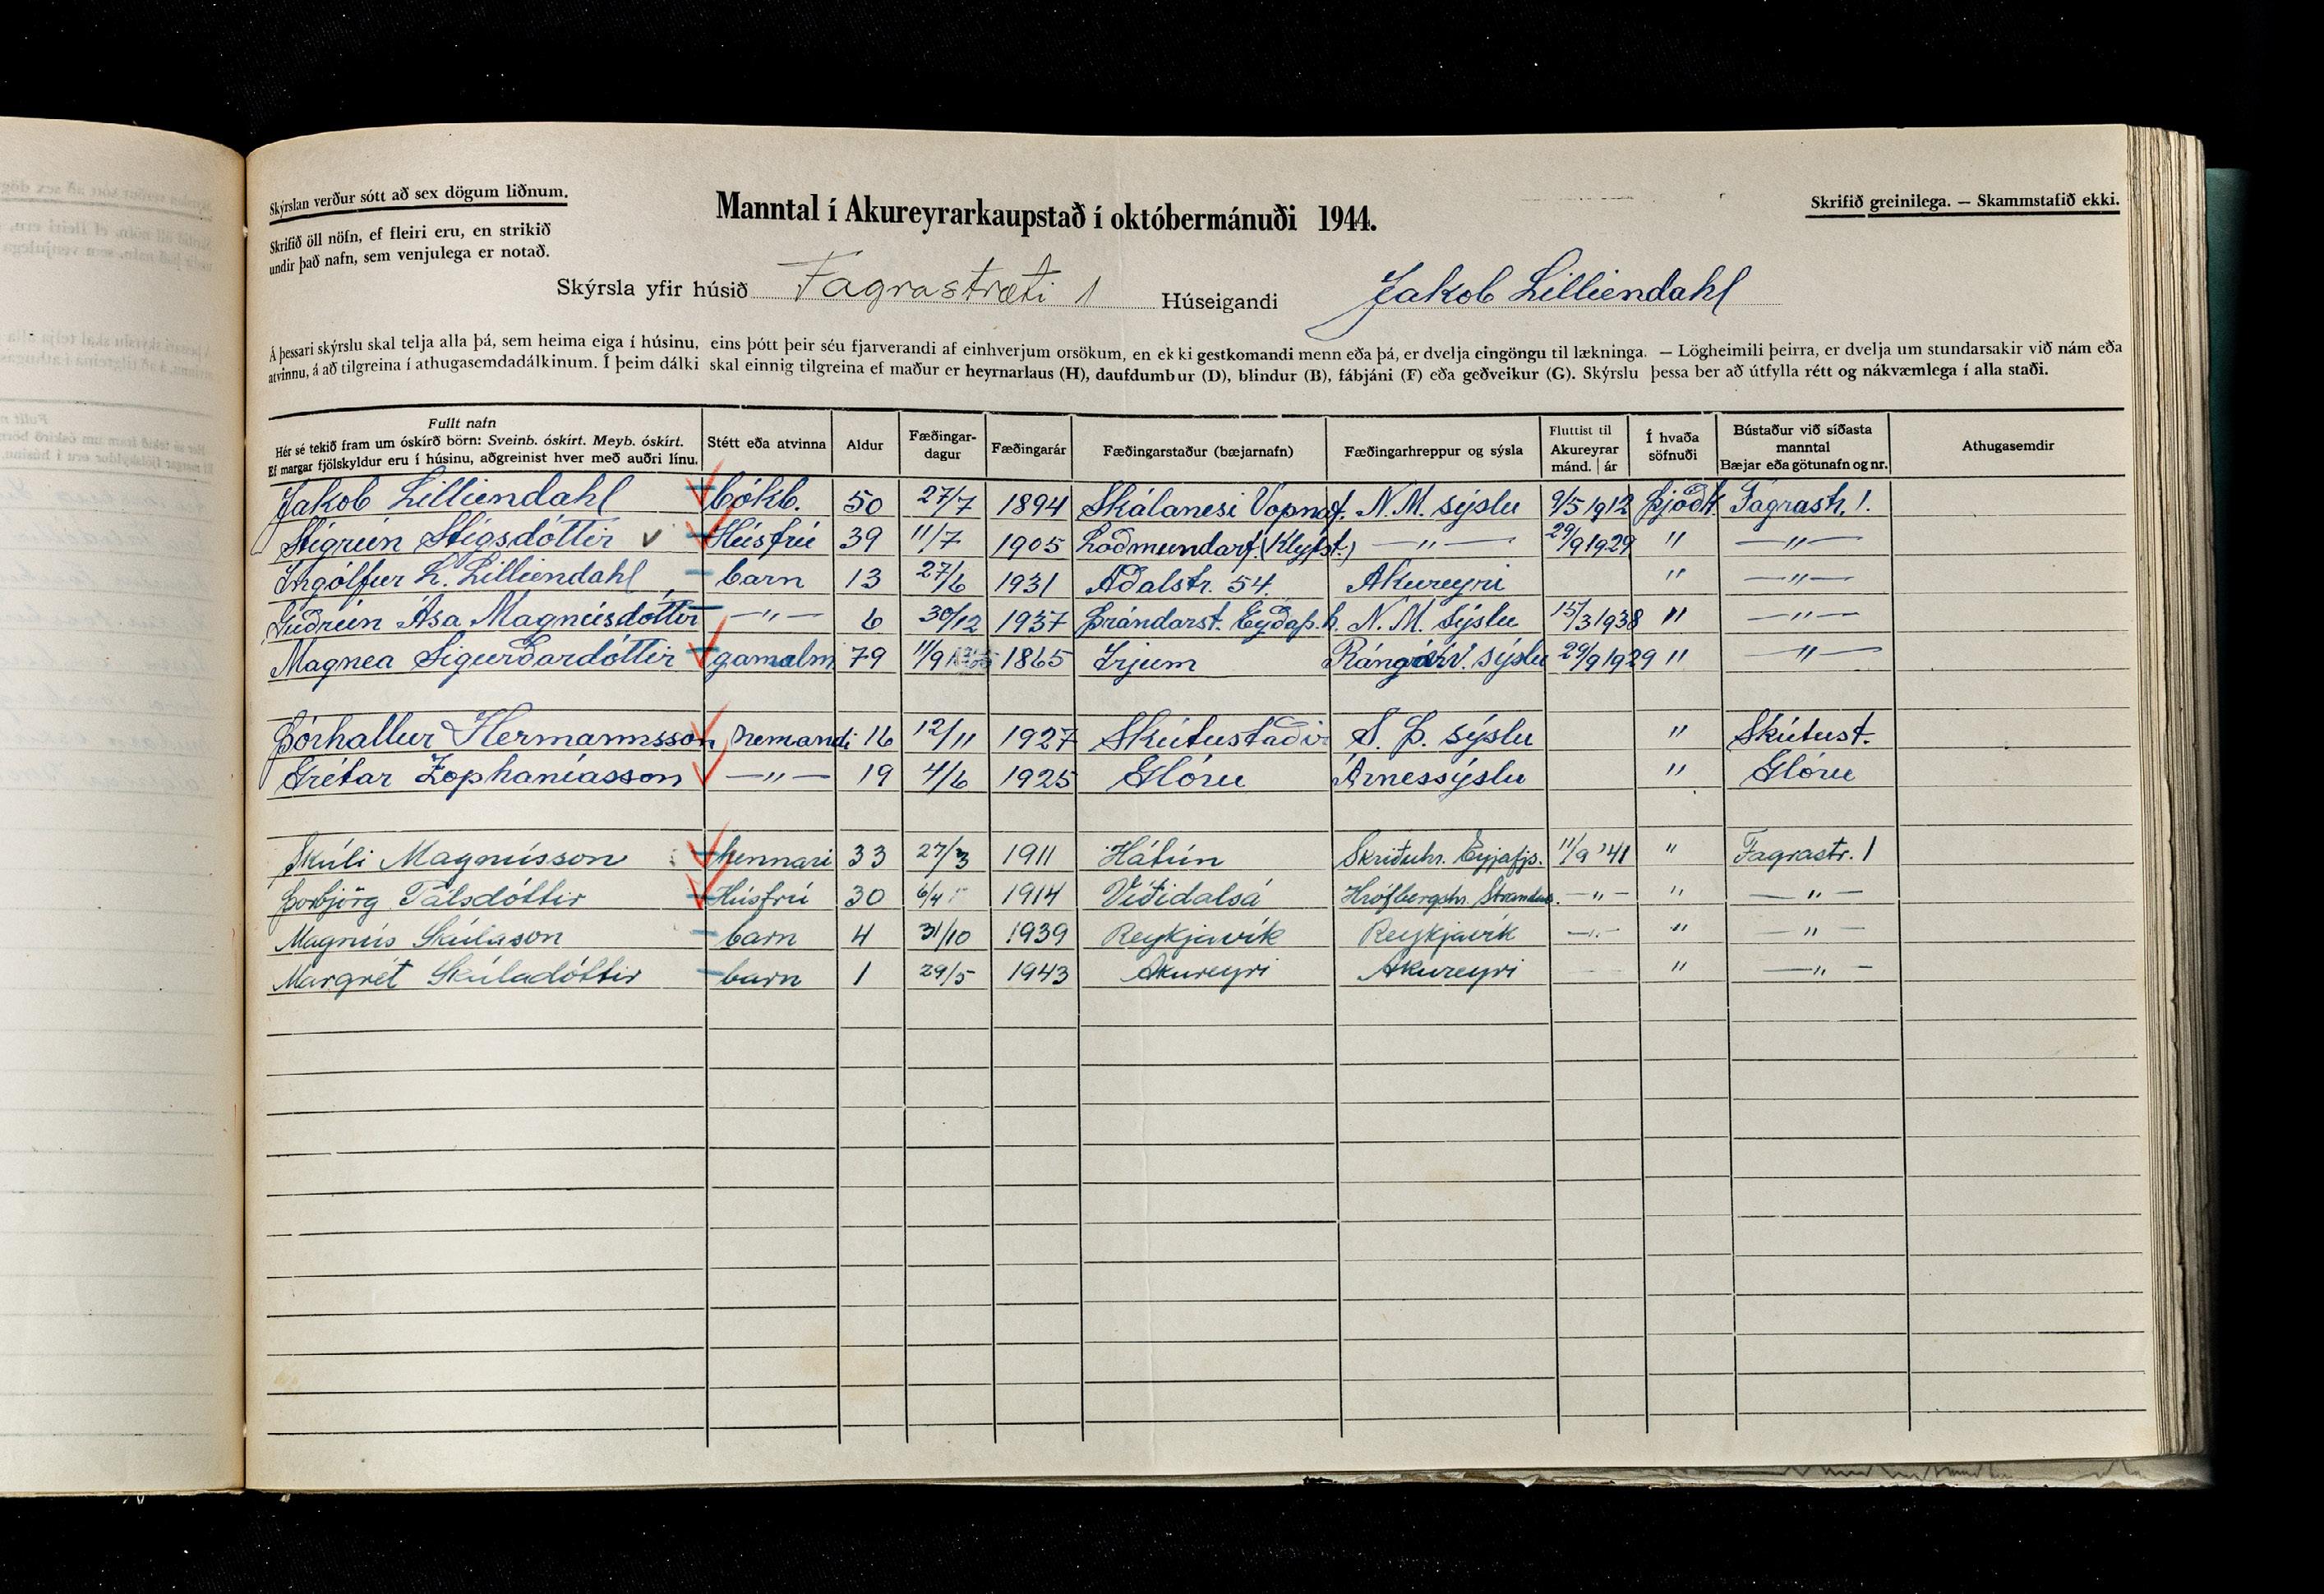 Skýrslan verður sótt að sex dögum liðnum.
Skrifið öll nöfn, ef fleiri eru, en strikið
undir það nafn, sem venjulega er notað.
Manntal í Akureyrarkaupstað í októbermánuði 1944.
Skrifið greinilega. — Skammstafið ekki.
Skýrsla yfir húsið Fagrastræti 1 Húseigandi Jakob Lilliendahl
Á þessari skýrslu skal telja alla þá, sem heima eiga í húsinu, eins þótt þeir séu fjarverandi af einhverjum orsökum, en ekki gestkomandi menn eða þá, er dvelja eingöngu til lækninga. — Lögheimili þeirra, er dvelja um stundarsakir við nám eða
atvinnu, á að tilgreina í athugasemdadálkinum. Í þeim dálki skal einnig tilgreina ef maður er heyrnarlaus (H), daufdumbur (D), blindur (B), fábjáni (F) eða geðveikur (G). Skýrslu þessa ber að útfylla rétt og nákvæmlega í alla staði.
Fullt nafn
Hér sé tekið fram um óskírð börn: Sveinb. óskírt. Meyb. óskírt.
Ef margar fjölskyldur eru í húsinu, aðgreinist hver með auðri línu.
Stétt eða atvinna
Aldur
Fæðingar-
dagur
Fæðingarár
Fæðingarstaður (bæjarnafn)
Fæðingarhreppur og sýsla
Fluttist til
Akureyrar
mánd. | ár
Í hvaða
söfnuði
Bústaður við síðasta
manntal
Bæjar eða götunafn og nr.
Athugasemdir
Jakob Lilliendahl bókb. 50 27/7 1894 Skálanesi Vopnaf. N.M. sýslu 9/5 1912 Þjóðk. Fagrastr. 1.
Sigrún Stígsdóttir v Húsfrú 39 11/7 1905 Loðmundarf. (Klyfst.) —"— 29/9 1929 " —"—
Ingólfur L. Lilliendahl barn 13 27/6 1931 Aðalstr. 54. Akureyri " —"—
Guðrún Ása Magnúsdóttir —"— 6 30/12 1937 Þrándarst. Eyðaþ.h. N.M. sýslu 15/3 1938 " —"—
Magnea Sigurðardóttir gamalm 79 11/9 1865 Irjum Rángárv. sýslu 29/9 1929 " —"—
Þórhallur Hermannsson nemandi 16 12/11 1927 Skútustaðir S. Þ. sýslu " Skútust.
Grétar Zophaníasson —"— 19 4/6 1925 Glóru Árnessýslu " Glóru
Skúli Magnússon kennari 33 27/3 1911 Hátún Skriðuhr. Eyjafjs. 11/9 '41 " Fagrastr. 1
Þorbjörg Pálsdóttir Húsfrú 30 6/4 1914 Víðidalsá Hrófbergshr. Strandas. —"— " —"—
Magnús Skúlason barn 4 31/10 1939 Reykjavík Reykjavík —"— " —"—
Margrét Skúladóttir barn 1 29/5 1943 Akureyri Akureyri " —"—